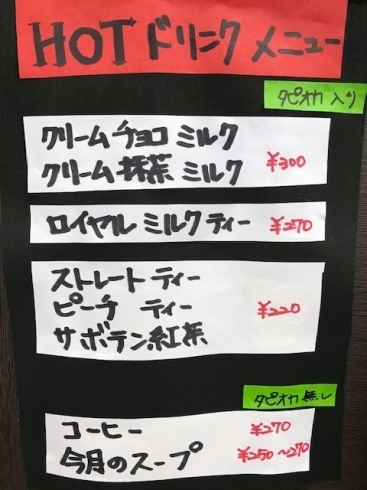 HOT ドリンク メニュー
タピオカ 入り
クリームチョコ ミルク
クリーム抹茶 ミルク ¥300
ロイヤル ミルクティー ¥270
ストレート ティー
ピーチ ティー ¥220
サボテン紅茶
タピオカ 無し
コーヒー ¥270
今月のスープ ¥250〜270